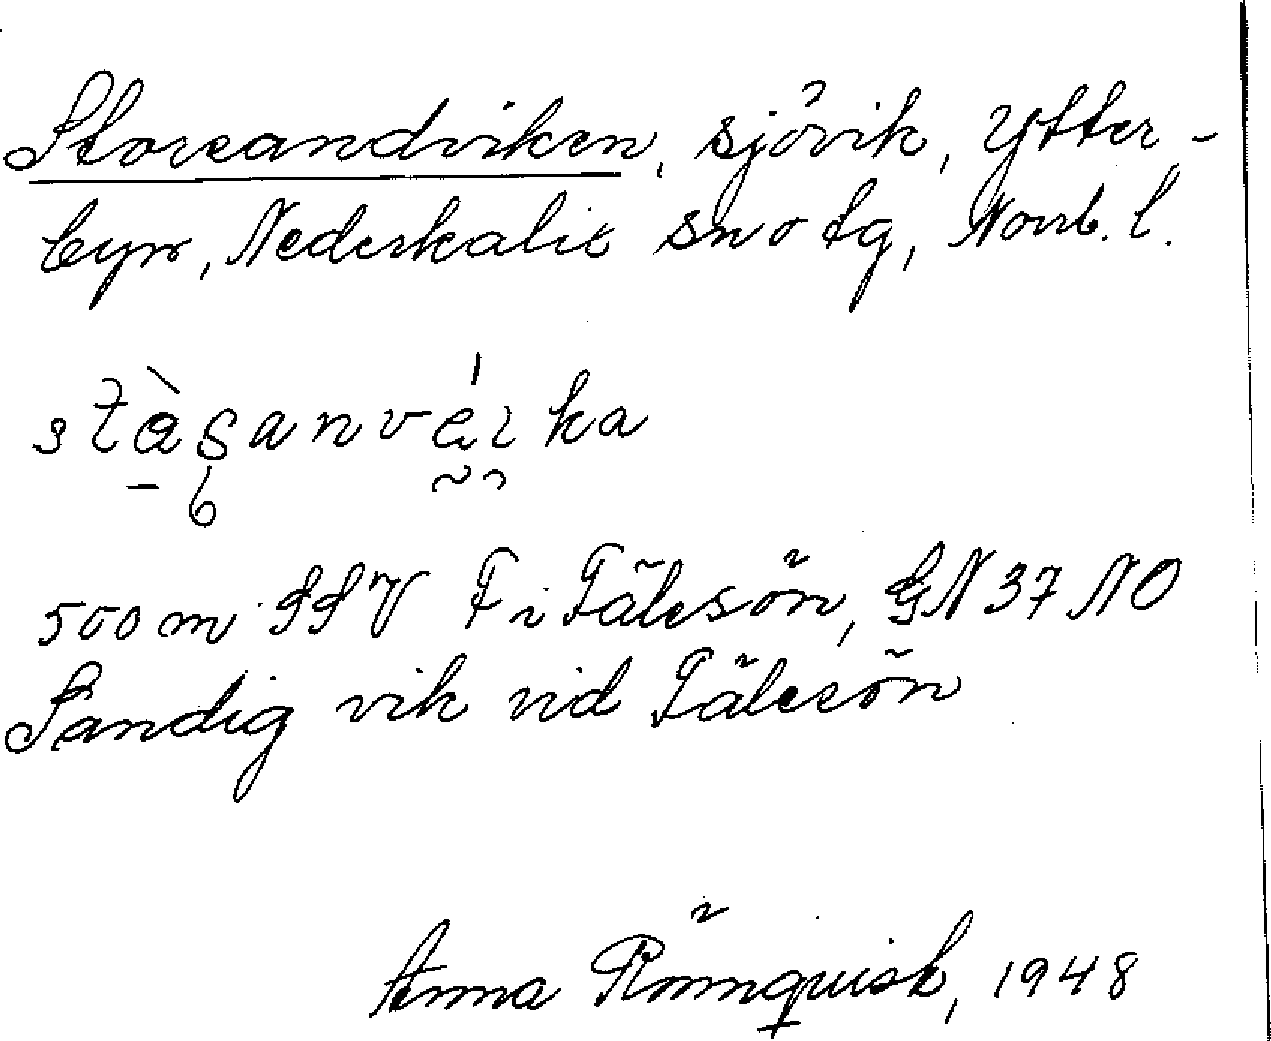 Storsandviken, sjövik, Ytter-
byn, Nederkalix sn o tg, Norrb. l.
stàsanvéika
500 m SSV F i Tälesön, GN 37 NO
Sandig vik vid Tälesön
Anna Rönnquist, 1948